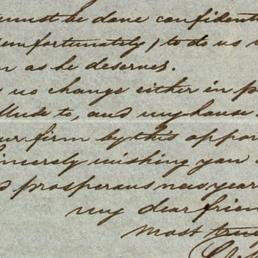 must be done confident
unfortunately, to do us
as he deserves.
no change either in p
llude to, and my house
ur firm by this oppor
incerely wishing you
prosperous new year
my dear frien
most truly